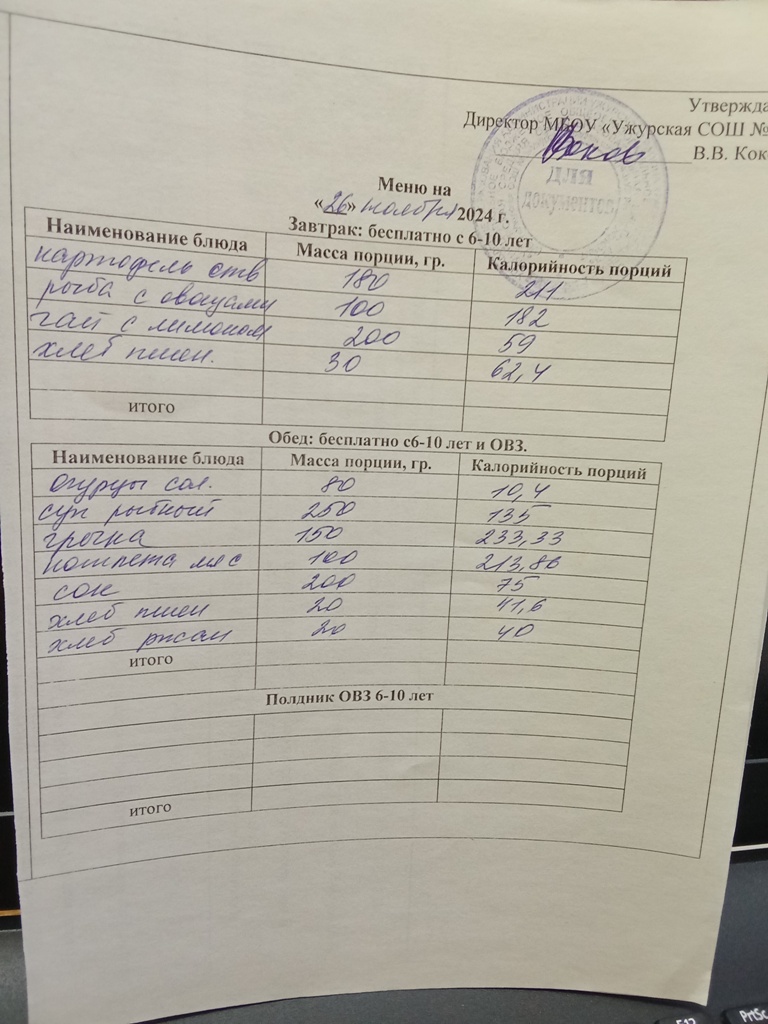 Утвержда
Директор МБОУ «Ужурская СОШ №
В.В. Кок
ДЛЯ
документов
Меню на
«26» ноября 2024 г.
Завтрак: бесплатно с 6-10 лет
Наименование блюда Масса порции, гр. Калорийность порций
картофель отв 180 211
рыба с овощами 100 182
чай с лимоном 200 59
хлеб пшен. 30 62,4
итого
Обед: бесплатно с6-10 лет и ОВЗ.
Наименование блюда Масса порции, гр. Калорийность порций
огурцы сол. 80 10,4
суп рыбный 250 135
гречка 150 233,33
котлета мяс 100 213,86
сок 200 75
хлеб пшен 20 41,6
хлеб ржан 20 40
итого
Полдник ОВЗ 6-10 лет
итого
F12
PrtSc